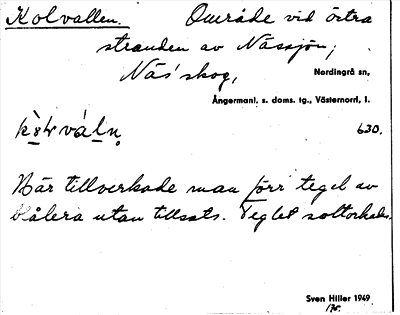 Kolvallen. Område vid östra
stranden av Nässjön,
Näs' skog, Nordingrå sn,
Ångermanl. s. doms. tg., Västernorrl. l.
630.
Här tillverkade man förr tegel av
blålera utan tillsats. Teglet soltorkades.
Sven Hiller 1949